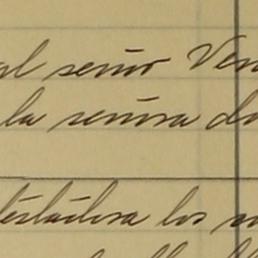 al señor Ven
la señora do
testadora los